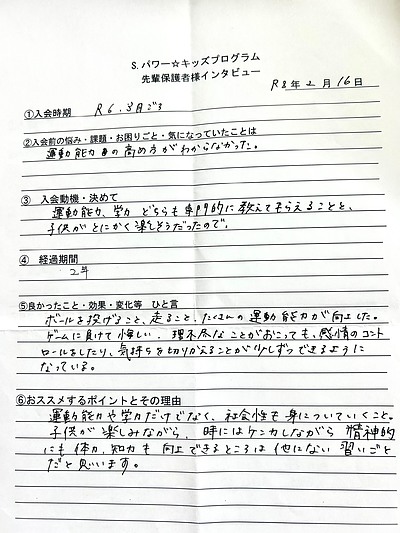 S.パワー☆キッズプログラム
先輩保護者様インタビュー
R8年2月16日
①入会時期 R6.3月ごろ
②入会前の悩み・課題・お困りごと・気になっていたことは
運動能力の高め方がわからなかった。
③ 入会動機・決めて
運動能力、学力 どちらも専門的に教えてもらえることと、
子供がとにかく楽しそうだったので。
④ 経過期間
2年
⑤良かったこと・効果・変化等 ひと言
ボールを投げること、走ること、たくさんの運動能力が向上した。
ゲームに負けて悔しい、理不尽なことがおこっても、感情のコント
ロールをしたり、気持ちを切りかえることが少しずつできるように
なっている。
⑥おススメするポイントとその理由
運動能力や学力だけでなく、社会性も身についていくこと。
子供が楽しみながら、時にはケンカしながら 精神的
にも体力、知力も向上できるところは他にない習いごと
だと思います。